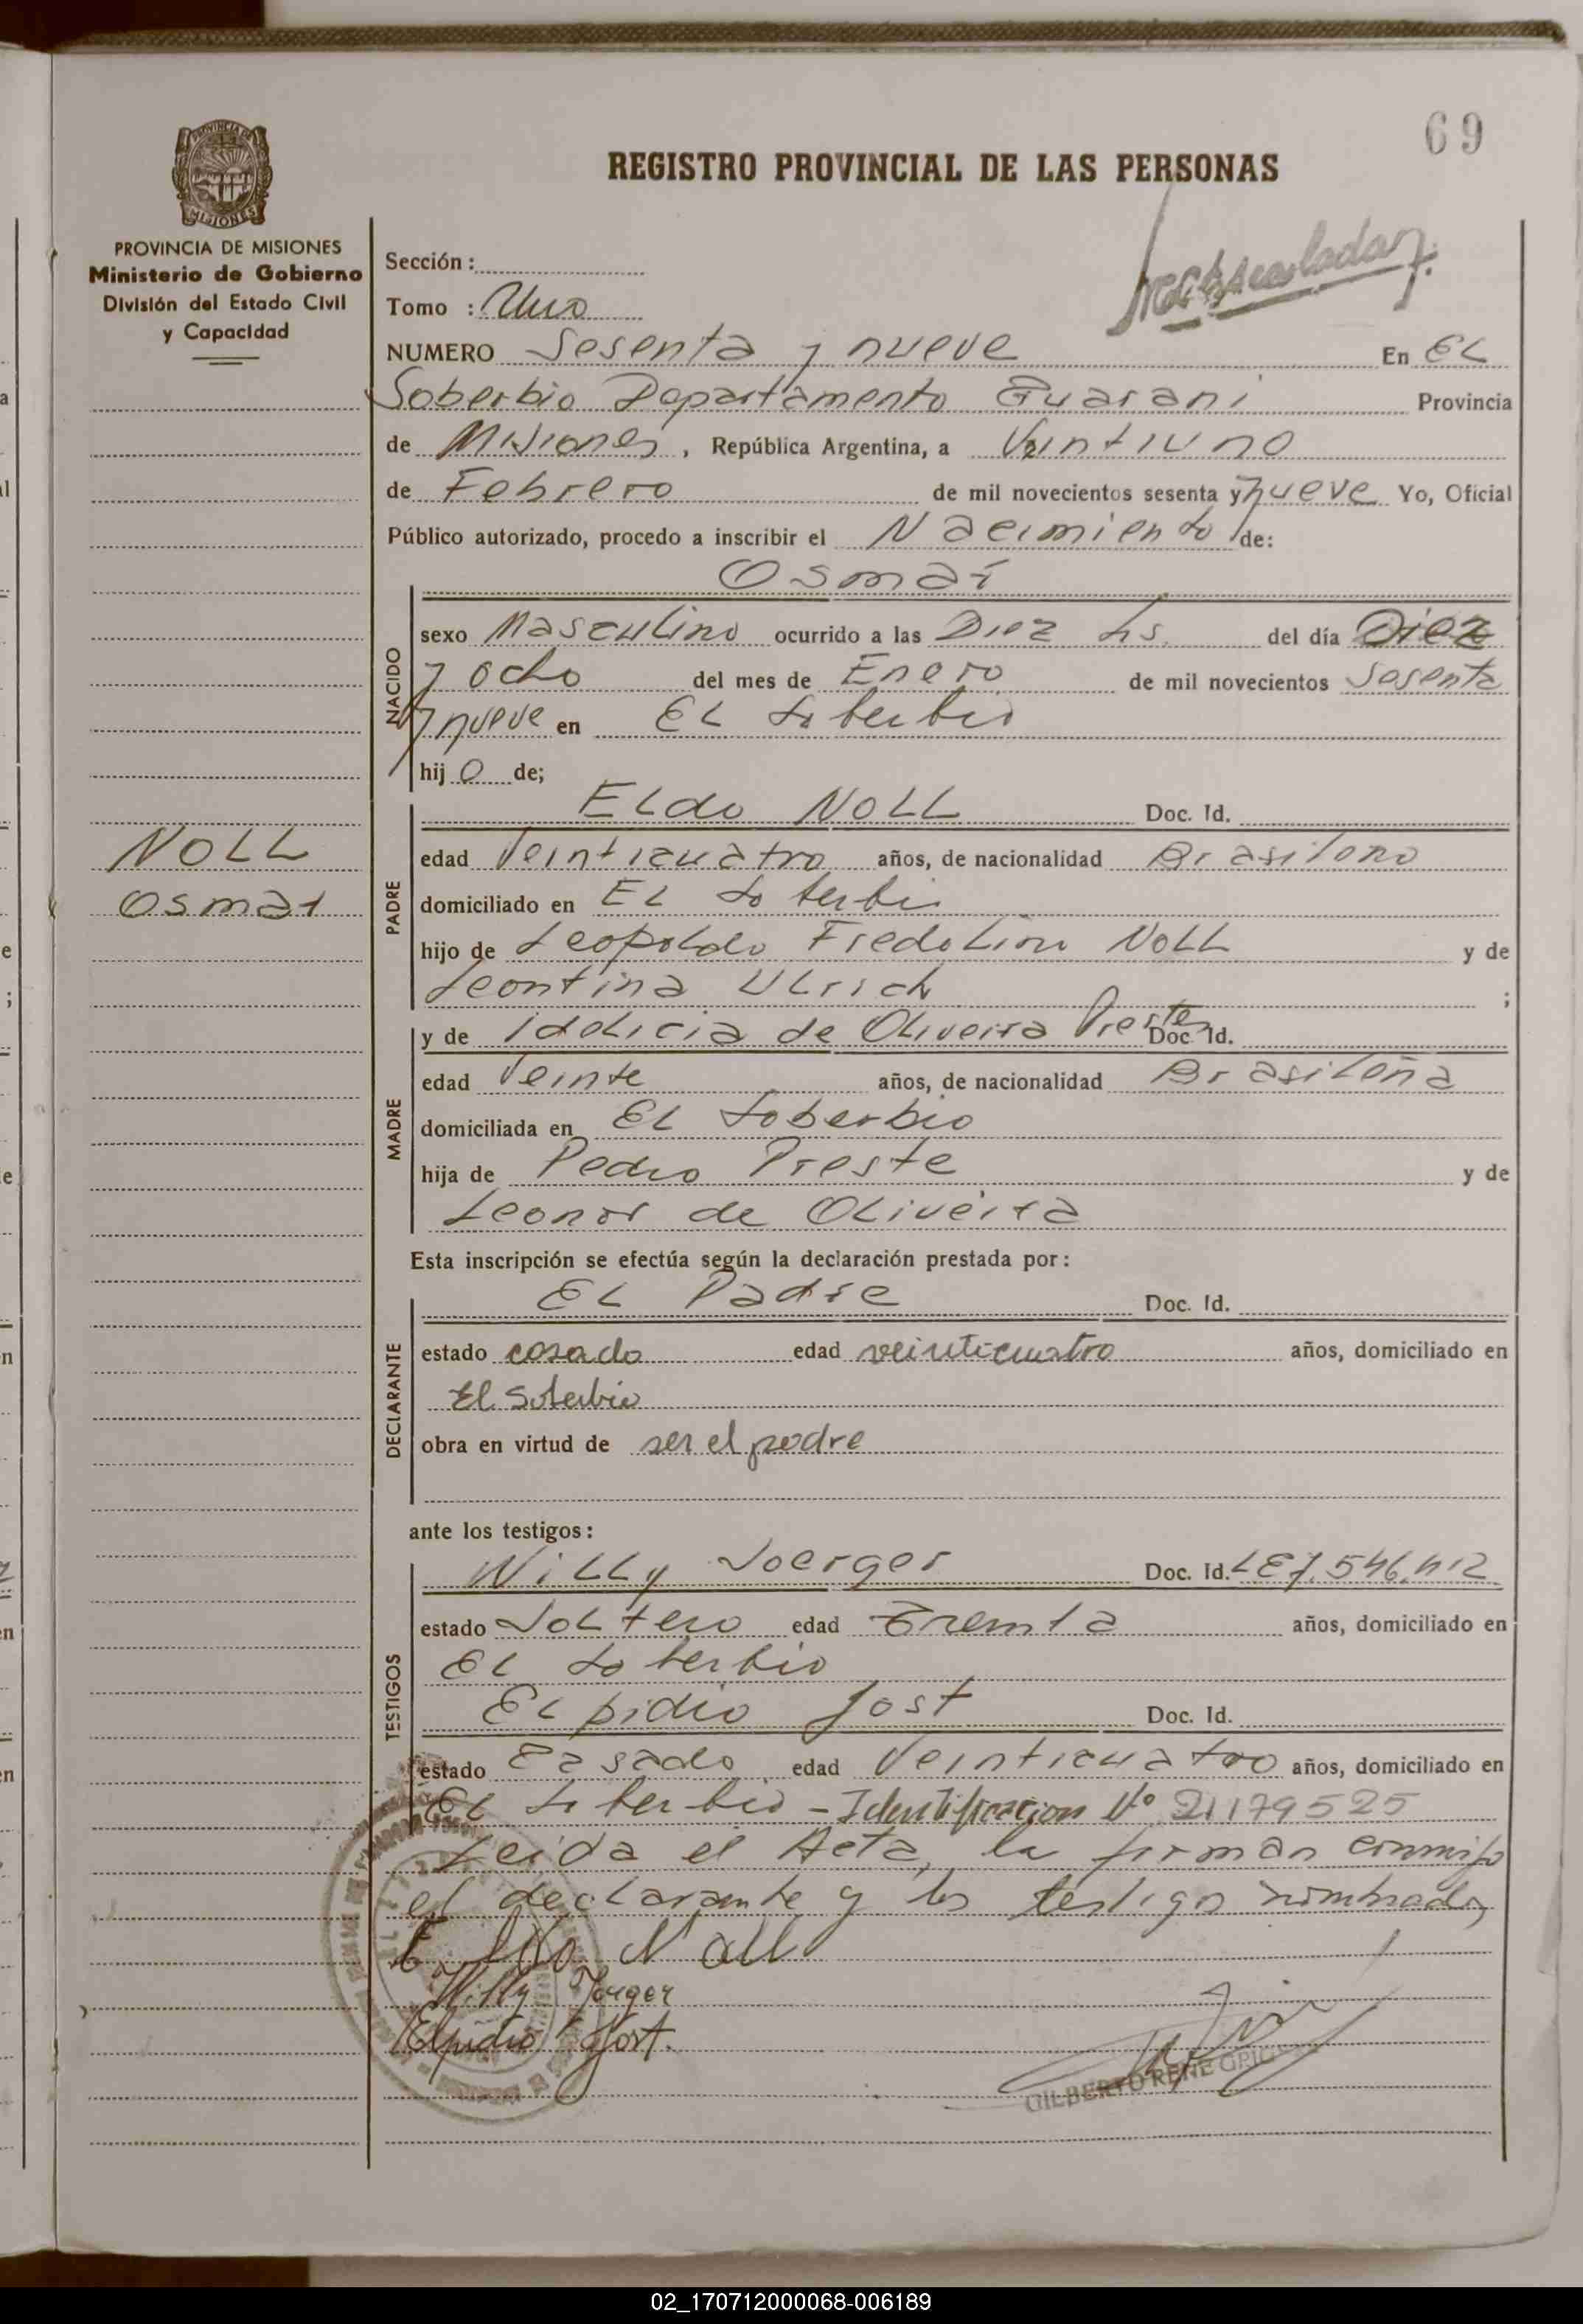 69
REGISTRO PROVINCIAL DE LAS PERSONAS
PROVINCIA DE MISIONES
MISIONES
PROVINCIA DE MISIONES
Ministerio de Gobierno
División del Estado Civil
y Capacidad
Sección :
Tomo : Uno
NUMERO Sesenta y nueve En EL
Soberbio Departamento Guarani Provincia
de Misiones, República Argentina, a Veintiuno
de Febrero de mil novecientos sesenta y nueve Yo, Oficial
Público autorizado, procedo a inscribir el Nacimiento de:
Osmar
NACIDO
sexo Masculino ocurrido a las Diez hs. del día Diez
y ocho del mes de Enero de mil novecientos Sesenta
y nueve en EL Soberbio
hij o de;
NOLL
Osmar
PADRE
ELdo NOLL Doc. Id.
edad Veinticuatro años, de nacionalidad Brasileño
domiciliado en EL Soberbio
hijo de Leopoldo Fredolino NOLL y de
Leontina ULrich ;
MADRE
y de Idolicia de Oliveira Preste Doc. Id.
edad Veinte años, de nacionalidad Brasileña
domiciliada en EL Soberbio
hija de Pedro Preste y de
Leonor de Oliveira
Esta inscripción se efectúa según la declaración prestada por:
DECLARANTE
EL Padre Doc. Id.
estado casado edad veinticuatro años, domiciliado en
El Soberbio
obra en virtud de ser el padre
ante los testigos:
TESTIGOS
WiLLy Joerger Doc. Id. LE7.546.412
estado Soltero edad Treinta años, domiciliado en
EL Soberbio
ELpidio Jost Doc. Id.
estado Casado edad Veinticuatro años, domiciliado en
EL Soberbio - Identificacion Nº 21179525
Leida el Acta, la firman conmigo
el declarante y los testigos nombrados
Eldo Noll
Willy Jorger
Elpidio Jost.
GILBERTO RENE
02_170712000068-006189